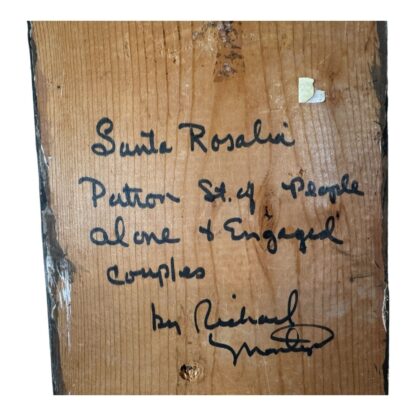 Santa Rosalia
Patron St. of People
alone & Engaged
couples
by Richard